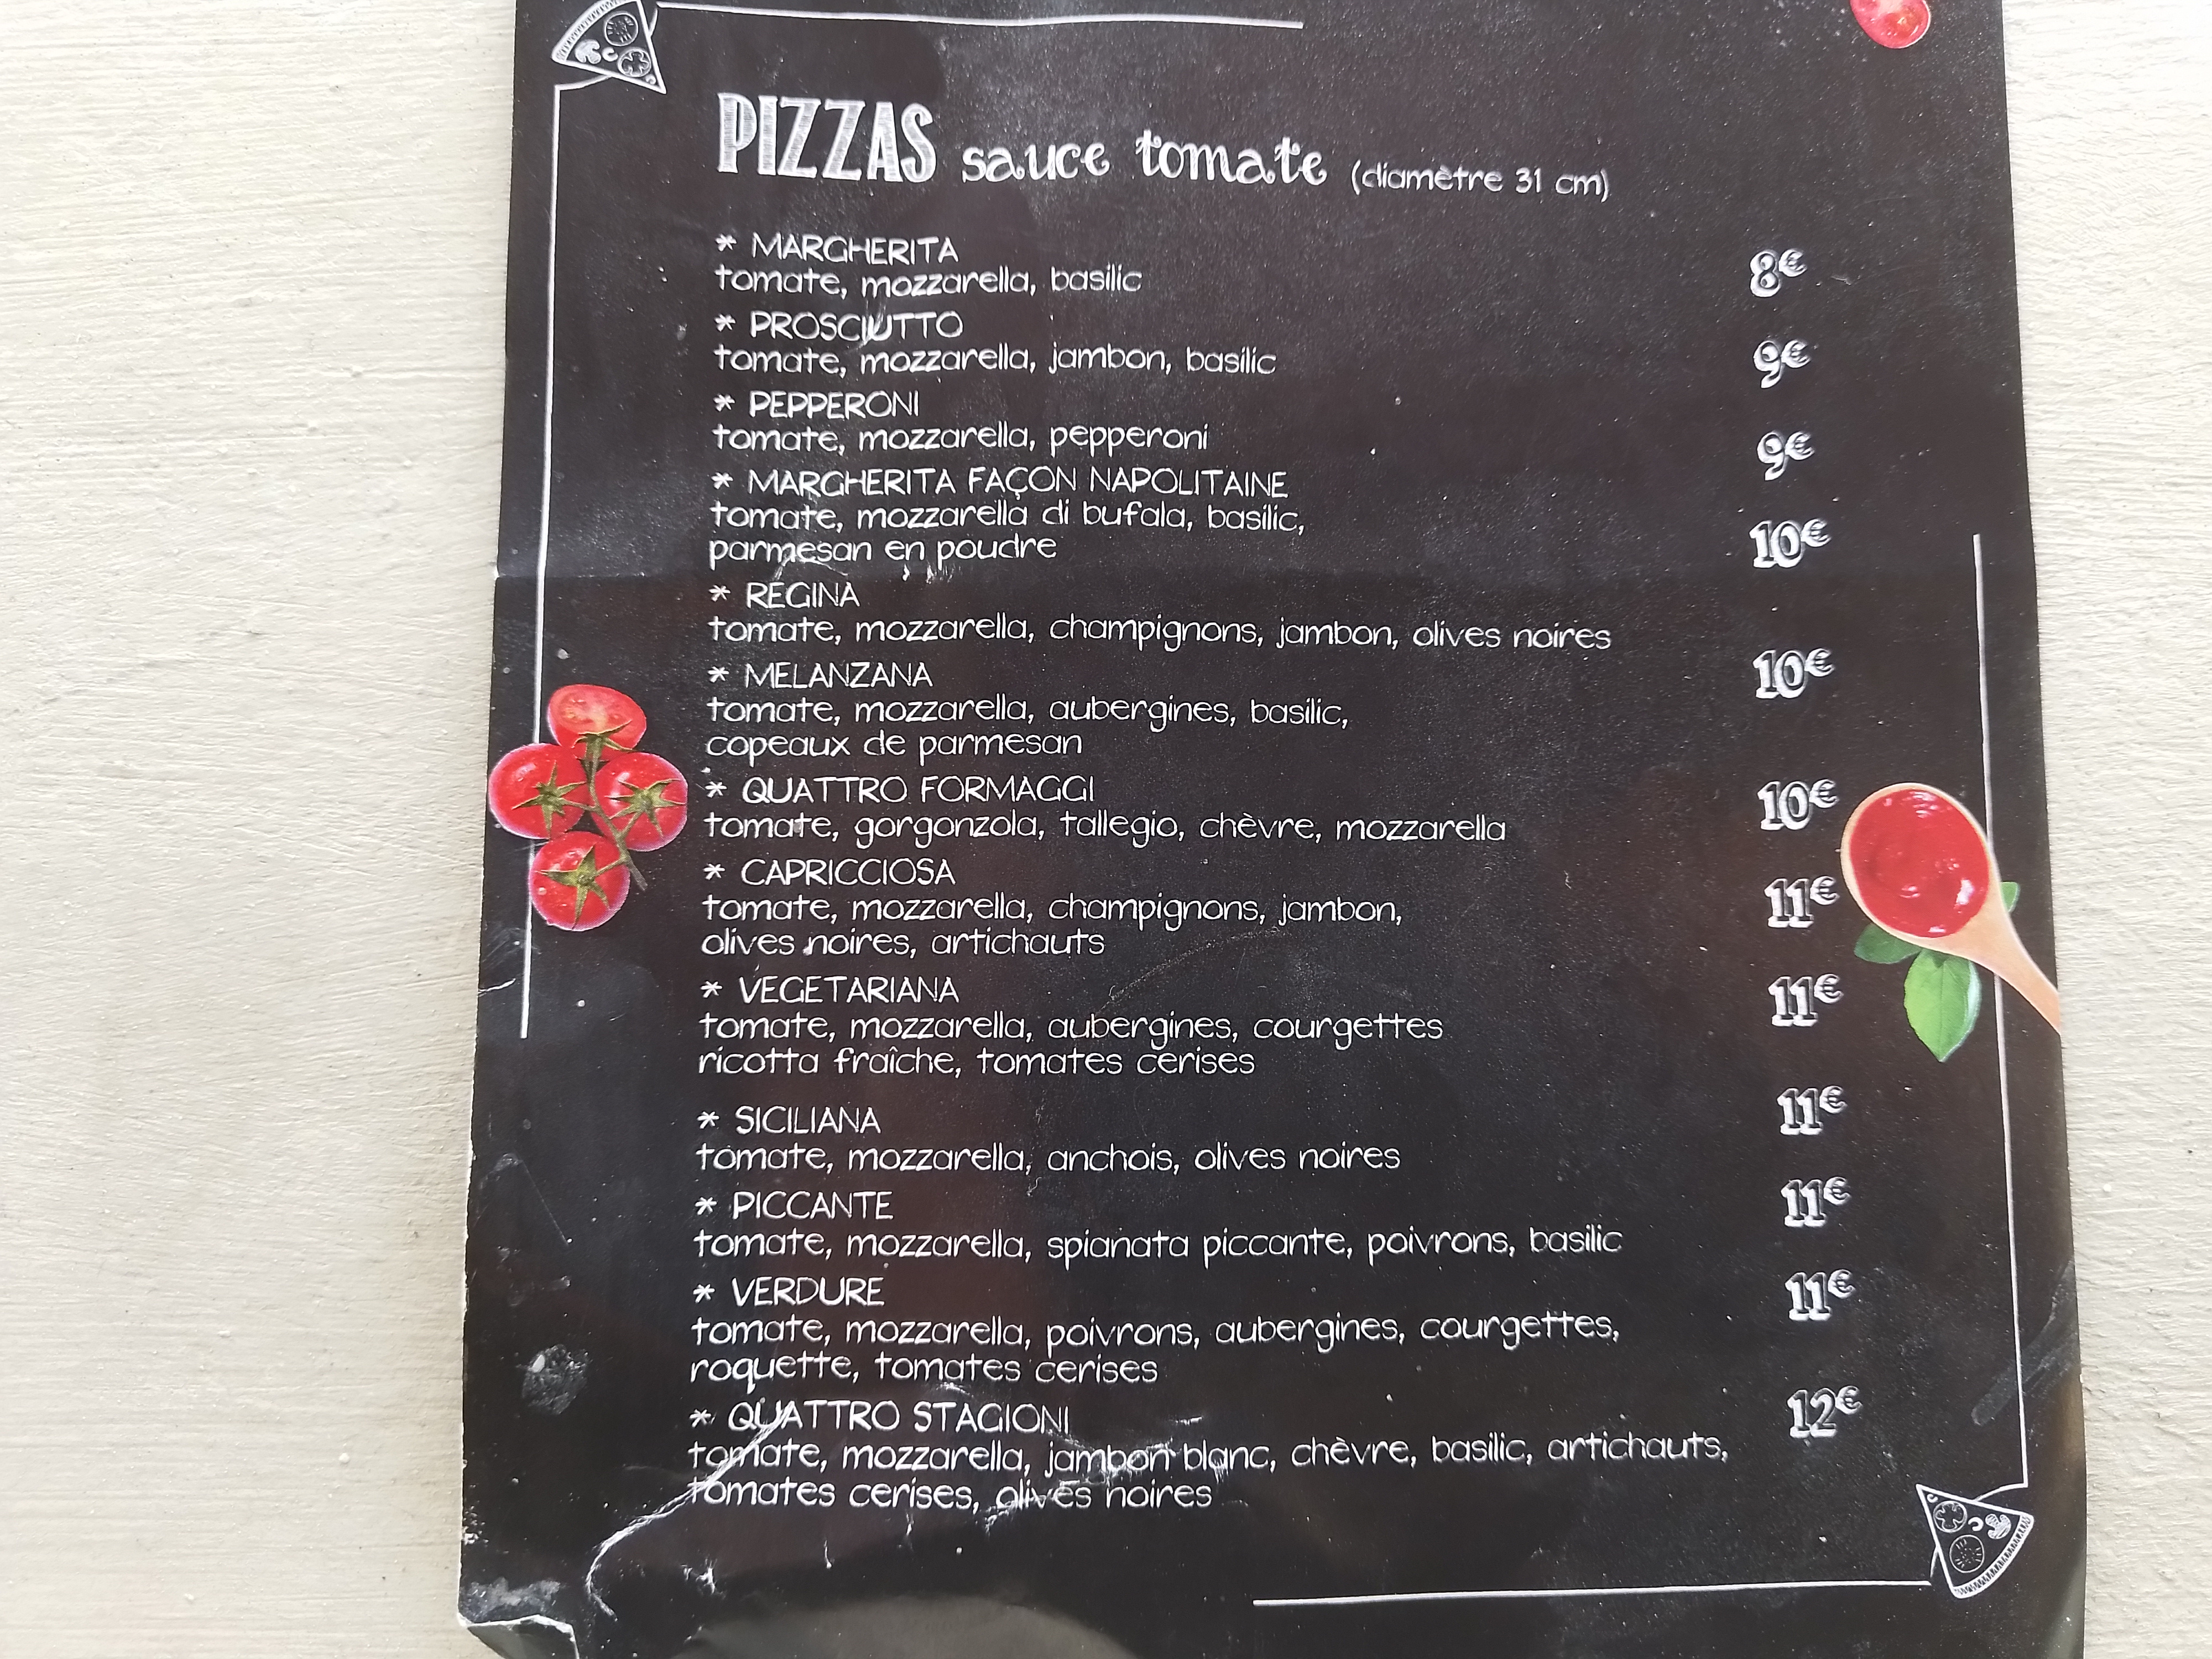 PIZZAS sauce tomate (diamètre 31 cm)
* MARGHERITA
tomate, mozzarella, basilic 8€
* PROSCIUTTO
tomate, mozzarella, jambon, basilic 9€
* PEPPERONI
tomate, mozzarella, pepperoni 9€
* MARGHERITA FAÇON NAPOLITAINE
tomate, mozzarella di bufala, basilic,
parmesan en poudre 10€
* REGINA
tomate, mozzarella, champignons, jambon, olives noires
* MELANZANA 10€
tomate, mozzarella, aubergines, basilic,
copeaux de parmesan
* QUATTRO FORMAGGI 10€
tomate, gorgonzola, tallegio, chèvre, mozzarella
* CAPRICCIOSA
tomate, mozzarella, champignons, jambon, 11€
olives noires, artichauts
* VEGETARIANA 11€
tomate, mozzarella, aubergines, courgettes
ricotta fraîche, tomates cerises
* SICILIANA 11€
tomate, mozzarella, anchois, olives noires
* PICCANTE 11€
tomate, mozzarella, spianata piccante, poivrons, basilic
* VERDURE 11€
tomate, mozzarella, poivrons, aubergines, courgettes,
roquette, tomates cerises
* QUATTRO STAGIONI 12€
tomate, mozzarella, jambon blanc, chèvre, basilic, artichauts,
tomates cerises, olives noires